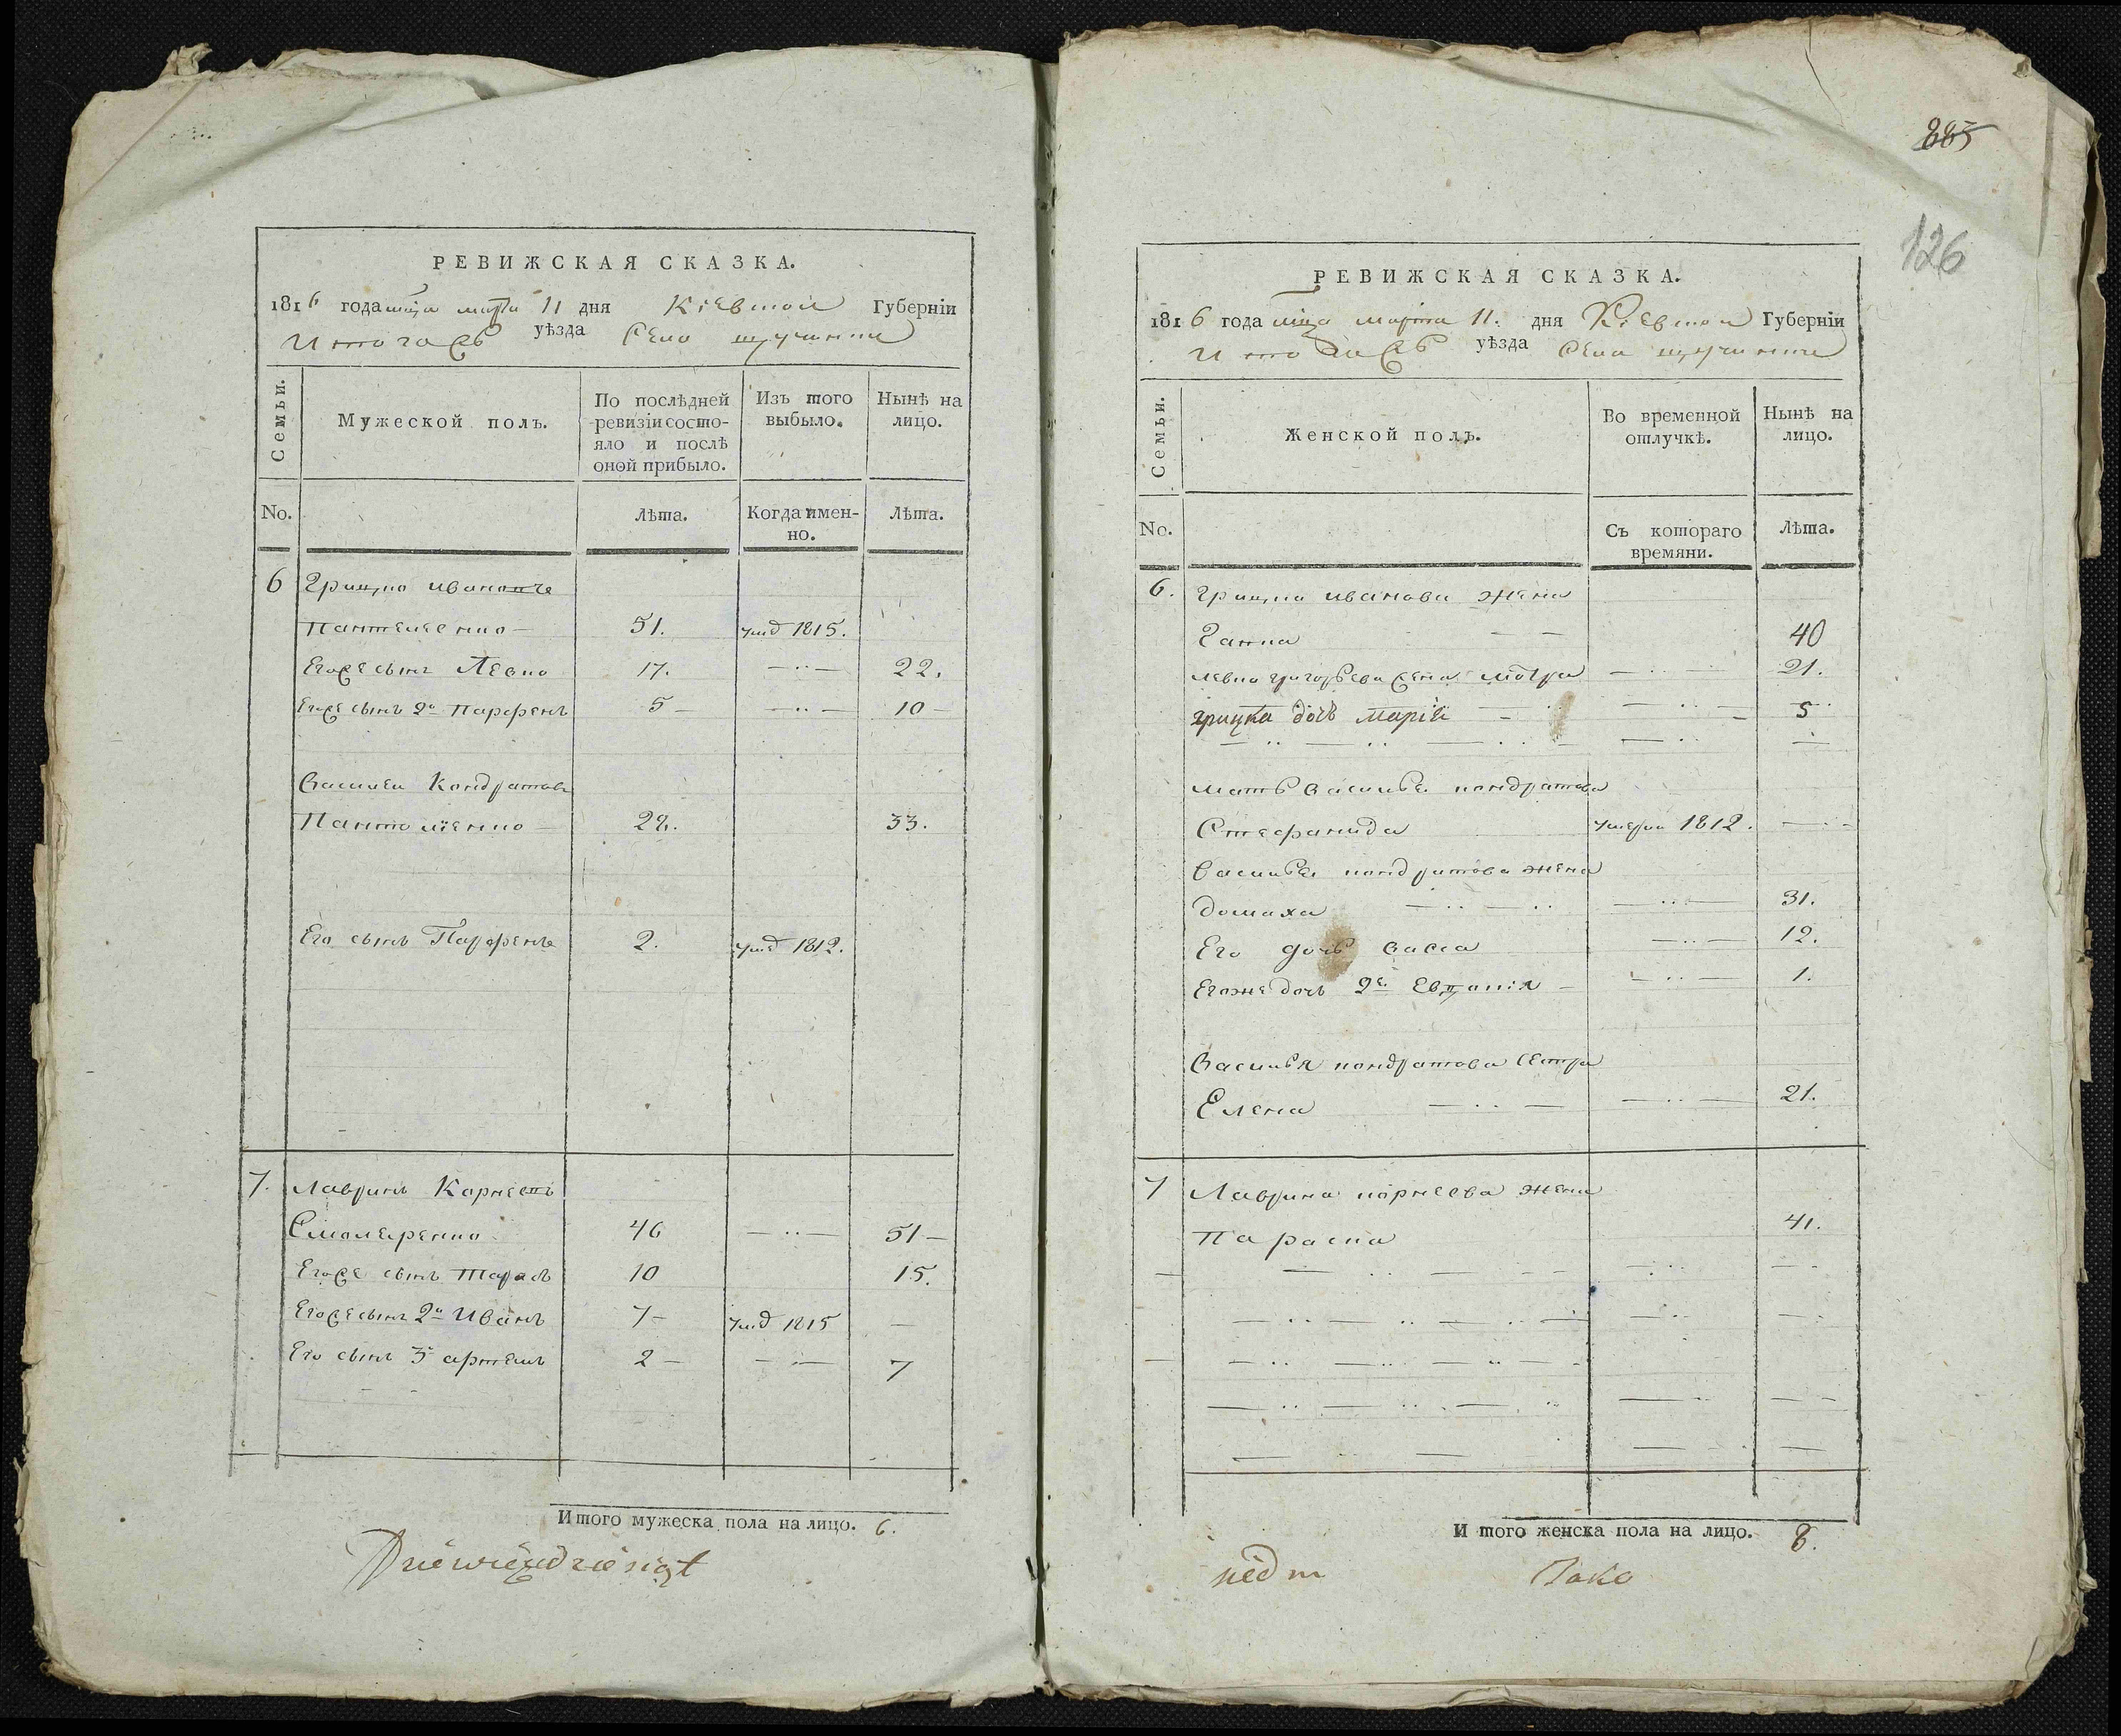 РЕВИЖСКАЯ СКАЗКА.
1816 года мца марта 11 дня Кіевской Губерніи
уѣзда Села щучинки
Семьи.
Мужеской полъ.
По послѣдней ревизіи состояло и послѣ оной прибыло.
Изъ того выбыло.
Нынѣ на лицо.
No.
Лѣта.
Когда именно.
Лѣта.
6 Грицко иванов
Пантелеенко — 51. умд 1815.
Егоже сынъ Левко 17. — 22.
Егоже сынъ 2й Парфенъ 5 — 10 —
Василеи Кондратов
Пантелиенко — 28. 33.
Его сынъ Парфенъ 2. умд 1812.
7. Лавринъ Корнеевъ
46 — 51 —
Егоже сынъ Тарасъ 10 15.
Егоже сынъ 2й Иванъ 7 — умд 1815 —
Его сынъ 3й артемъ 2 — 7
Итого мужеска пола на лицо. 6.
Dziewięćdziesiąt
885
126
РЕВИЖСКАЯ СКАЗКА.
1816 года мца марта 11. дня Кіевской Губерніи
уѣзда Села щучинки
Семьи.
Женской полъ.
Во временной отлучкѣ.
Нынѣ на лицо.
No.
Съ котораго времяни.
Лѣта.
6. Грицка иванова жена
Ганна — — 40
левка григорьева жена мотра — 21.
грицка дочь марія — 5
мать василья кондратова
Стефанида умерла 1812. —
василья кондратова жена
домаха — 31.
Его дочь васса — 12.
Егоже дочь 2я — 1.
василья кондратова сестра
Елена — 21.
7 Лаврина корнеева жена
Параска 41.
Итого женска пола на лицо. 8.
siedm